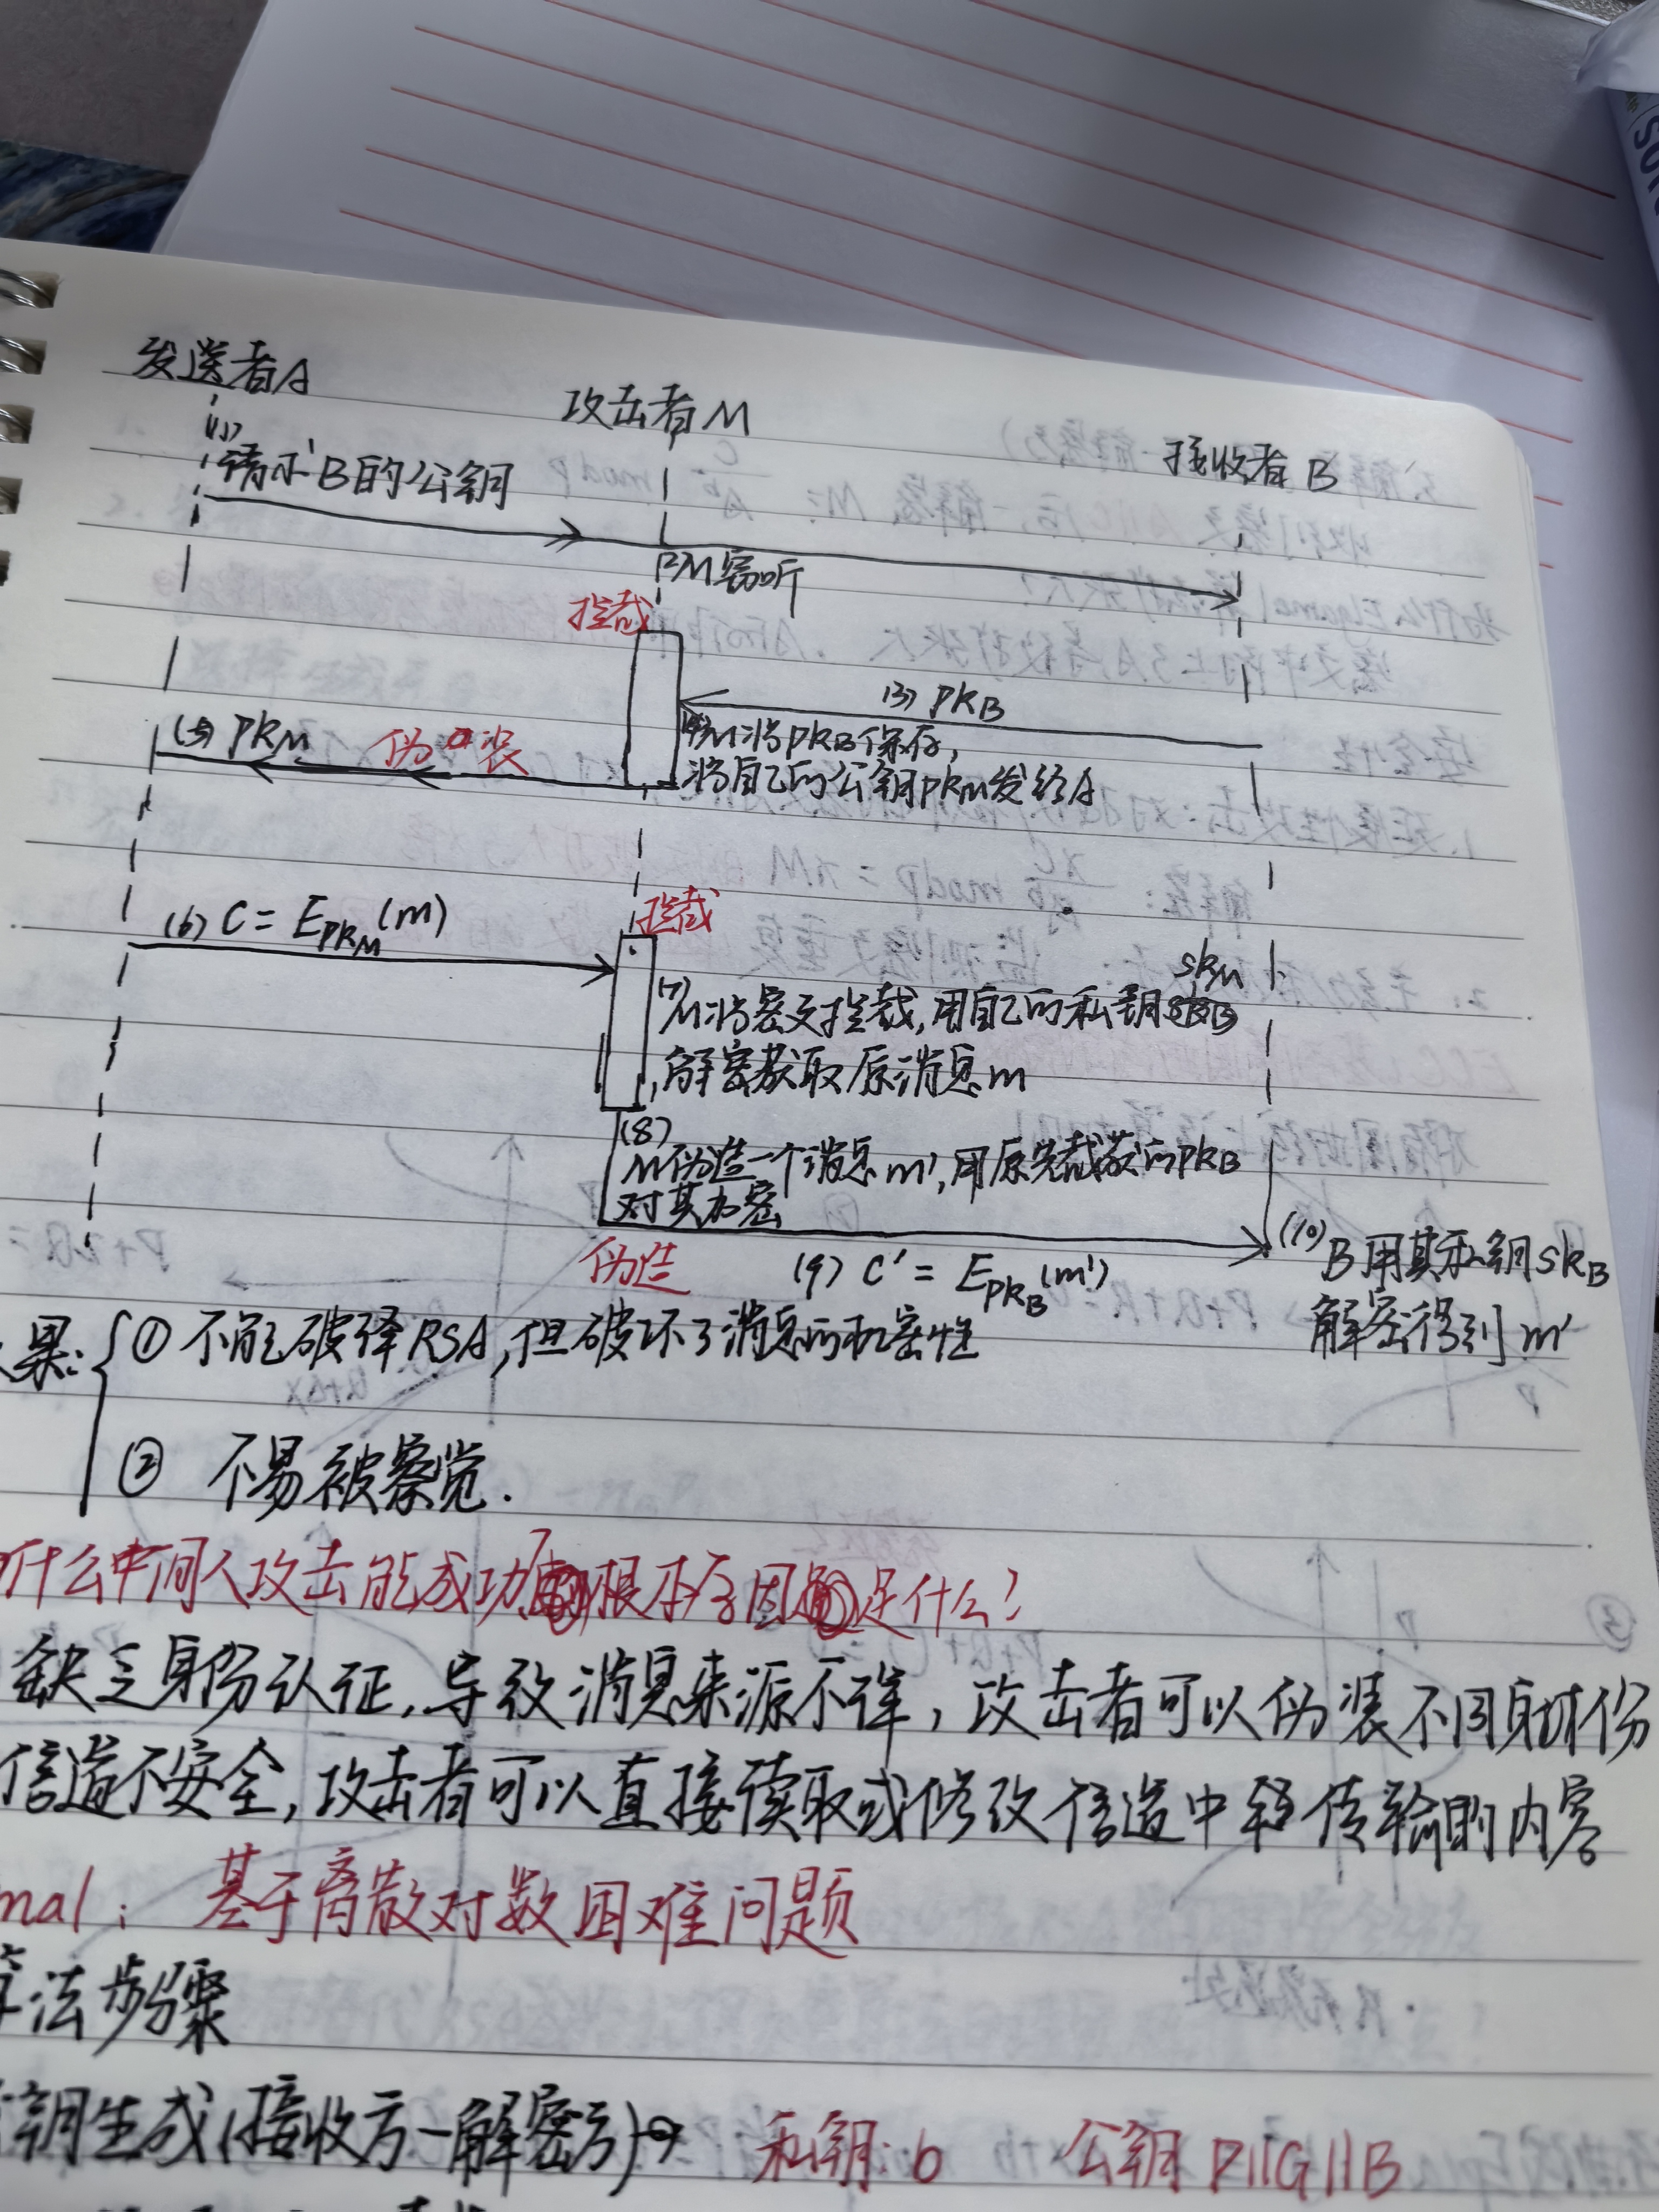 发送者A
攻击者M
接收者B
(1)
请求B的公钥
M窃听
拦截
(3) PKB
(4) M将PKB保存,
将自己的公钥PKM发给A
(5) PKM 伪装
(6) C = EPKM(m)
拦截
skM
(7) M将密文拦截,用自己的私钥
解密获取原消息m
(8)
M伪造一个消息m',用原先截获的PKB
对其加密
伪造
(9) C' = EPKB(m')
(10) B用其私钥SKB
解密得到m'
果:
① 不能破译RSA,但破坏了消息的机密性
② 不易被察觉.
什么中间人攻击能成功 根本原因 是什么?
缺乏身份认证,导致消息来源不详,攻击者可以伪装不同身份
信道不安全,攻击者可以直接读取或修改信道中 传输的内容
mal: 基于离散对数困难问题
算法步骤
钥生成(接收方-解密方)
私钥:b 公钥 P||G||B